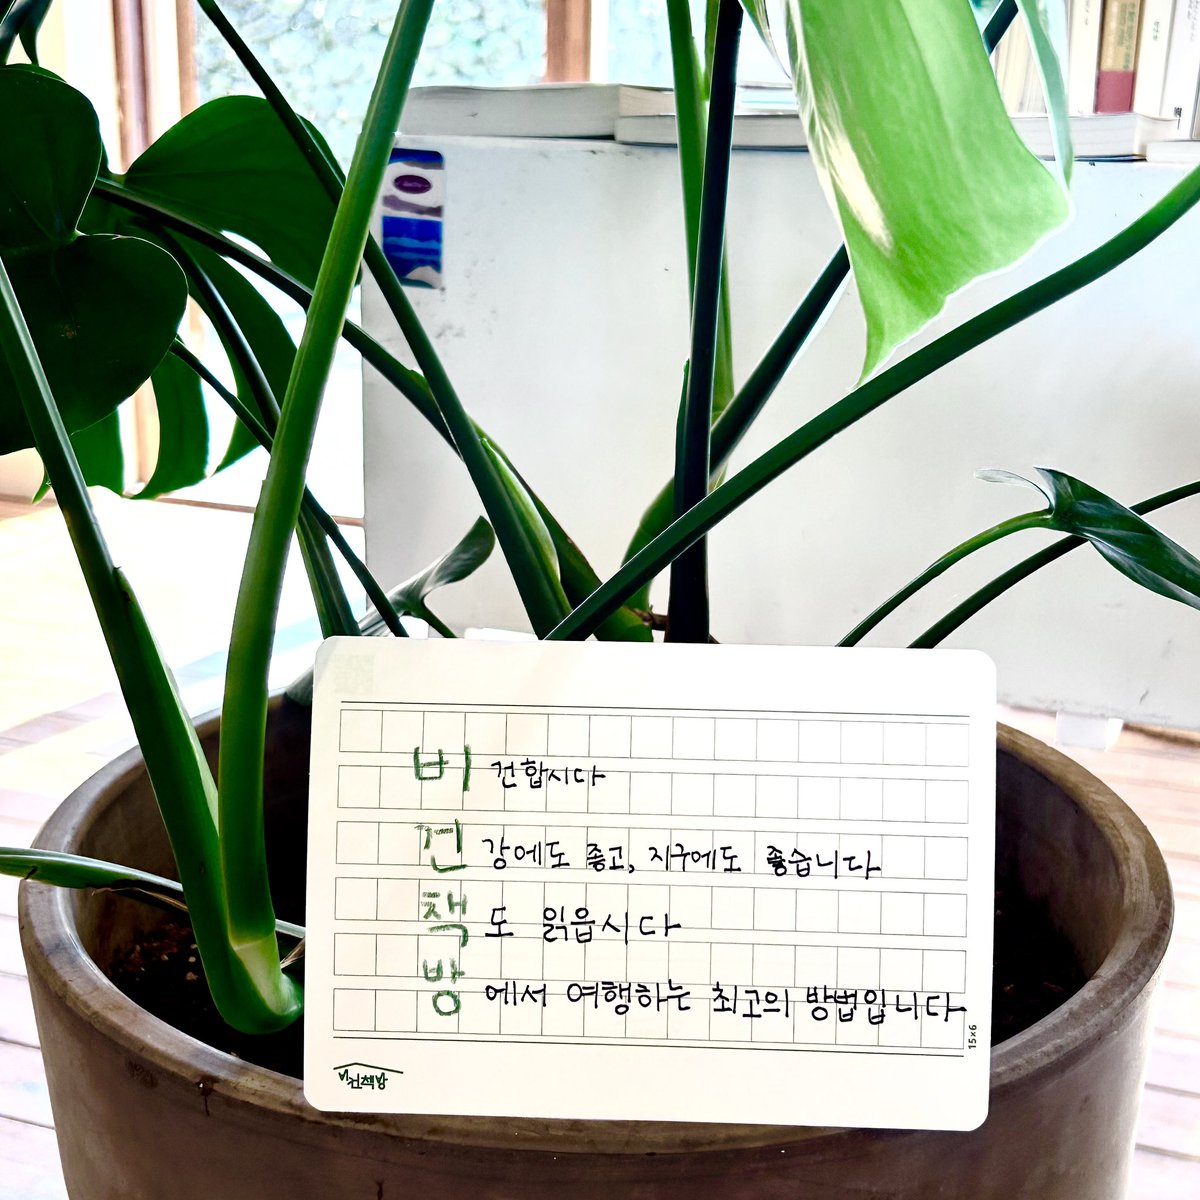 비 건합시다
건 강에도 좋고, 지구에도 좋습니다
책 도 읽읍시다
방 에서 여행하는 최고의 방법입니다
15×6
비건책방